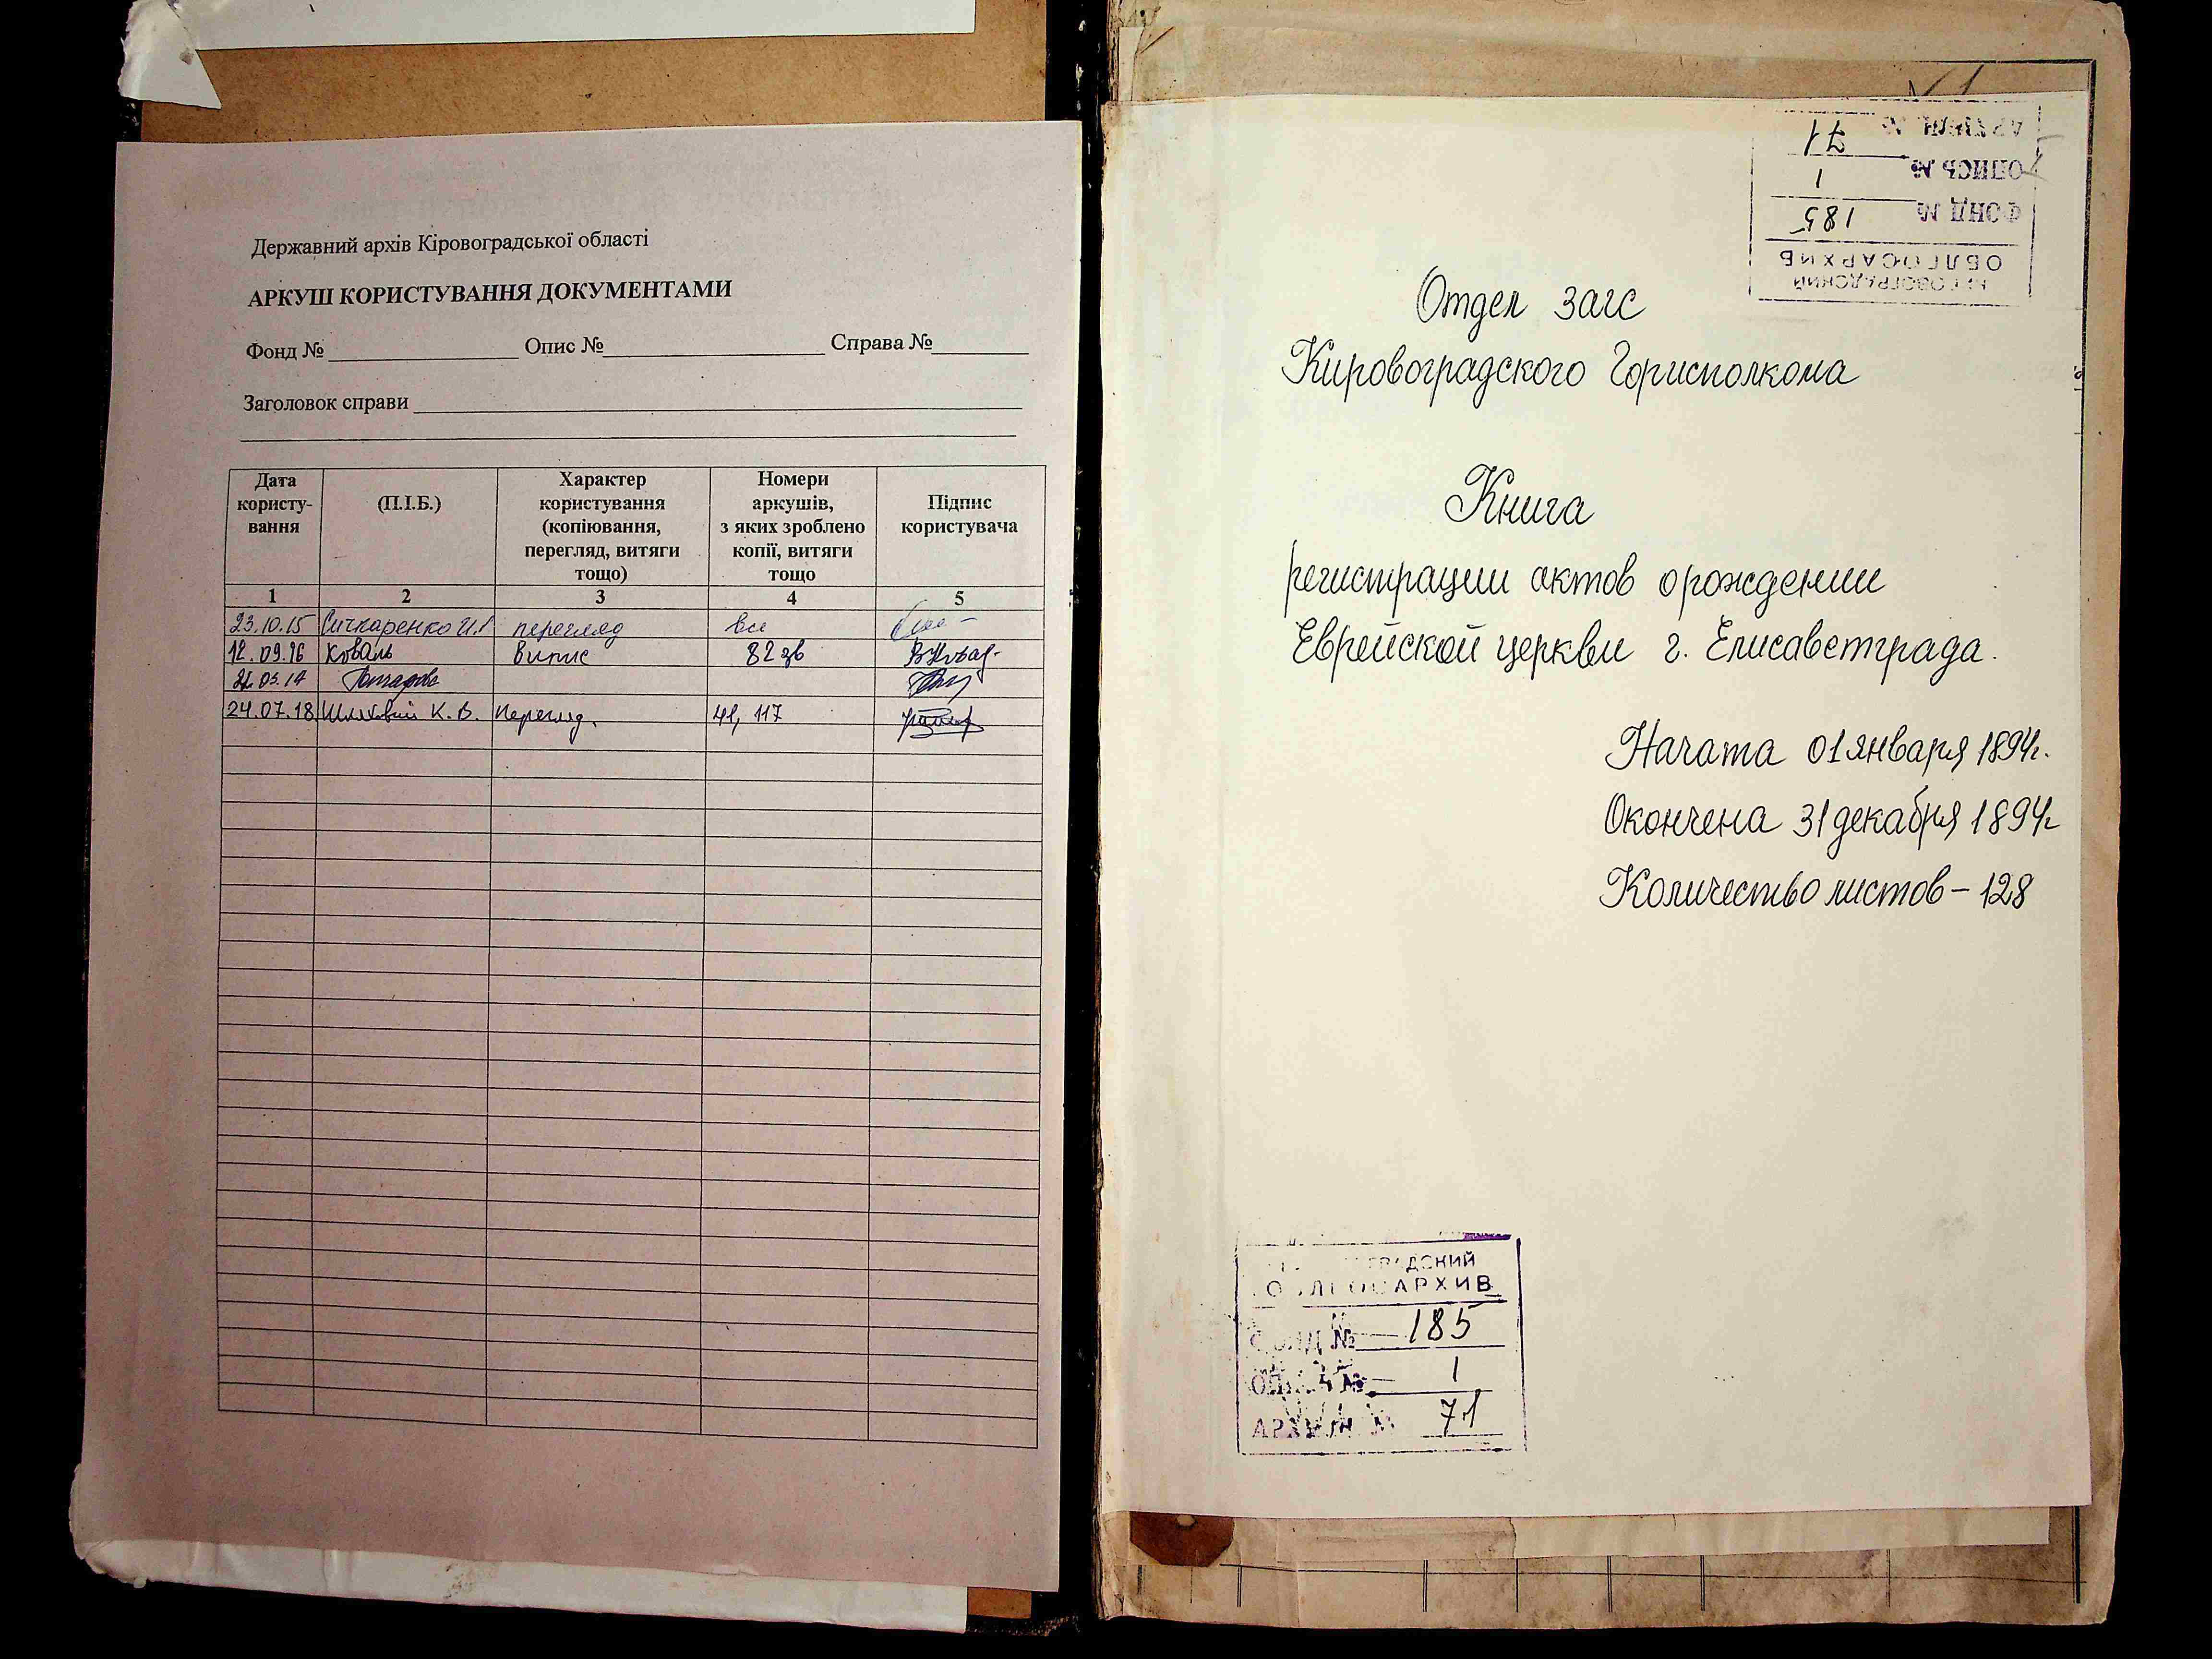 Державний архів Кіровоградської області
АРКУШ КОРИСТУВАННЯ ДОКУМЕНТАМИ
Фонд № Опис № Справа №
Заголовок справи
Дата користу-вання (П.І.Б.) Характер користування (копіювання, перегляд, витяги тощо) Номери аркушів, з яких зроблено копії, витяги тощо Підпис користувача
1 2 3 4 5
23.10.15 Сичкаренко И. перегляд все
12.09.16 Коваль Випис 82 зв
24.07.18 К. В. Перегляд. 41, 117
КИРОВОГРАДСКИЙ
ОБЛГОСАРХИВ
ФОНД № 185
ОПИСЬ № 1
АРХИВН. № 71
Отдел загс
Кировоградского Горисполкома
Книга
регистрации актов о рождении
Еврейской церкви г. Елисаветграда.
Начата 01 января 1894г.
Окончена 31 декабря 1894г
Количество листов – 128
ГРАДСКИЙ
ОБЛГОСАРХИВ
ФОНД № 185
ОПИСЬ № 1
АРХИВН. № 71